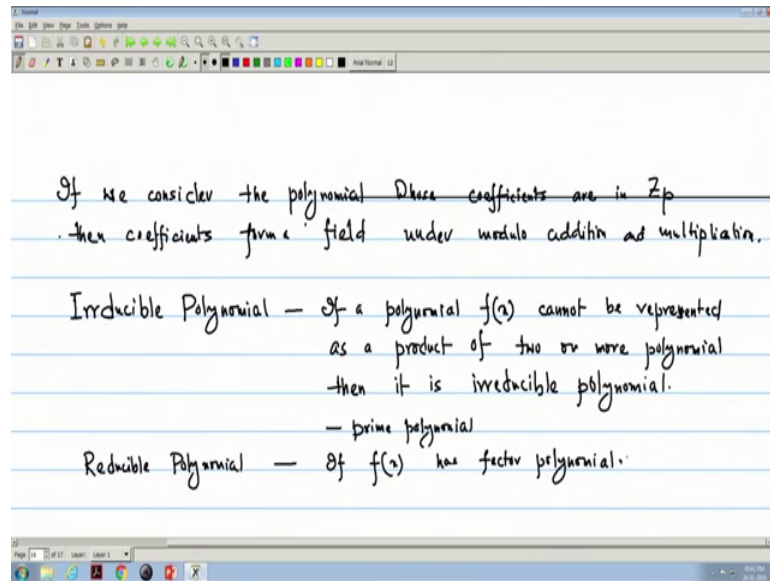 Journal
File Edit View Page Tools Options Help
Arial Normal 12
If we consider the polynomial Dhose coefficients are in Zp
then coefficients form a field under modulo addition ad multipliation.
Irrducible Polynomial — If a polynomial f(x) cannot be represented
as a product of two or more polynomial
then it is irreducible polynomial.
— prime polynomial
Reducible Polynomial — If f(x) has factor polynomial.
Page 16 of 17 Layer: Layer 1